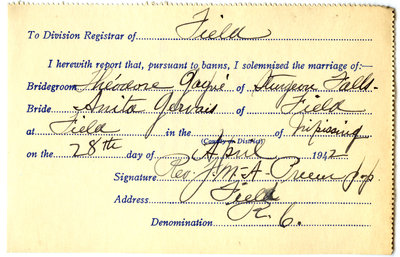 To Division Registrar of Field
I herewith report that, pursuant to banns, I solemnized the marriage of:—
Bridegroom Théodore Gagné of Sturgeon Falls.
Bride Anita Gervais of Field
at Field in the (County or District) of Nipissing
on the 28th day of April 1942
Signature Rev. J. M-A.
Address Field
Denomination R. C.